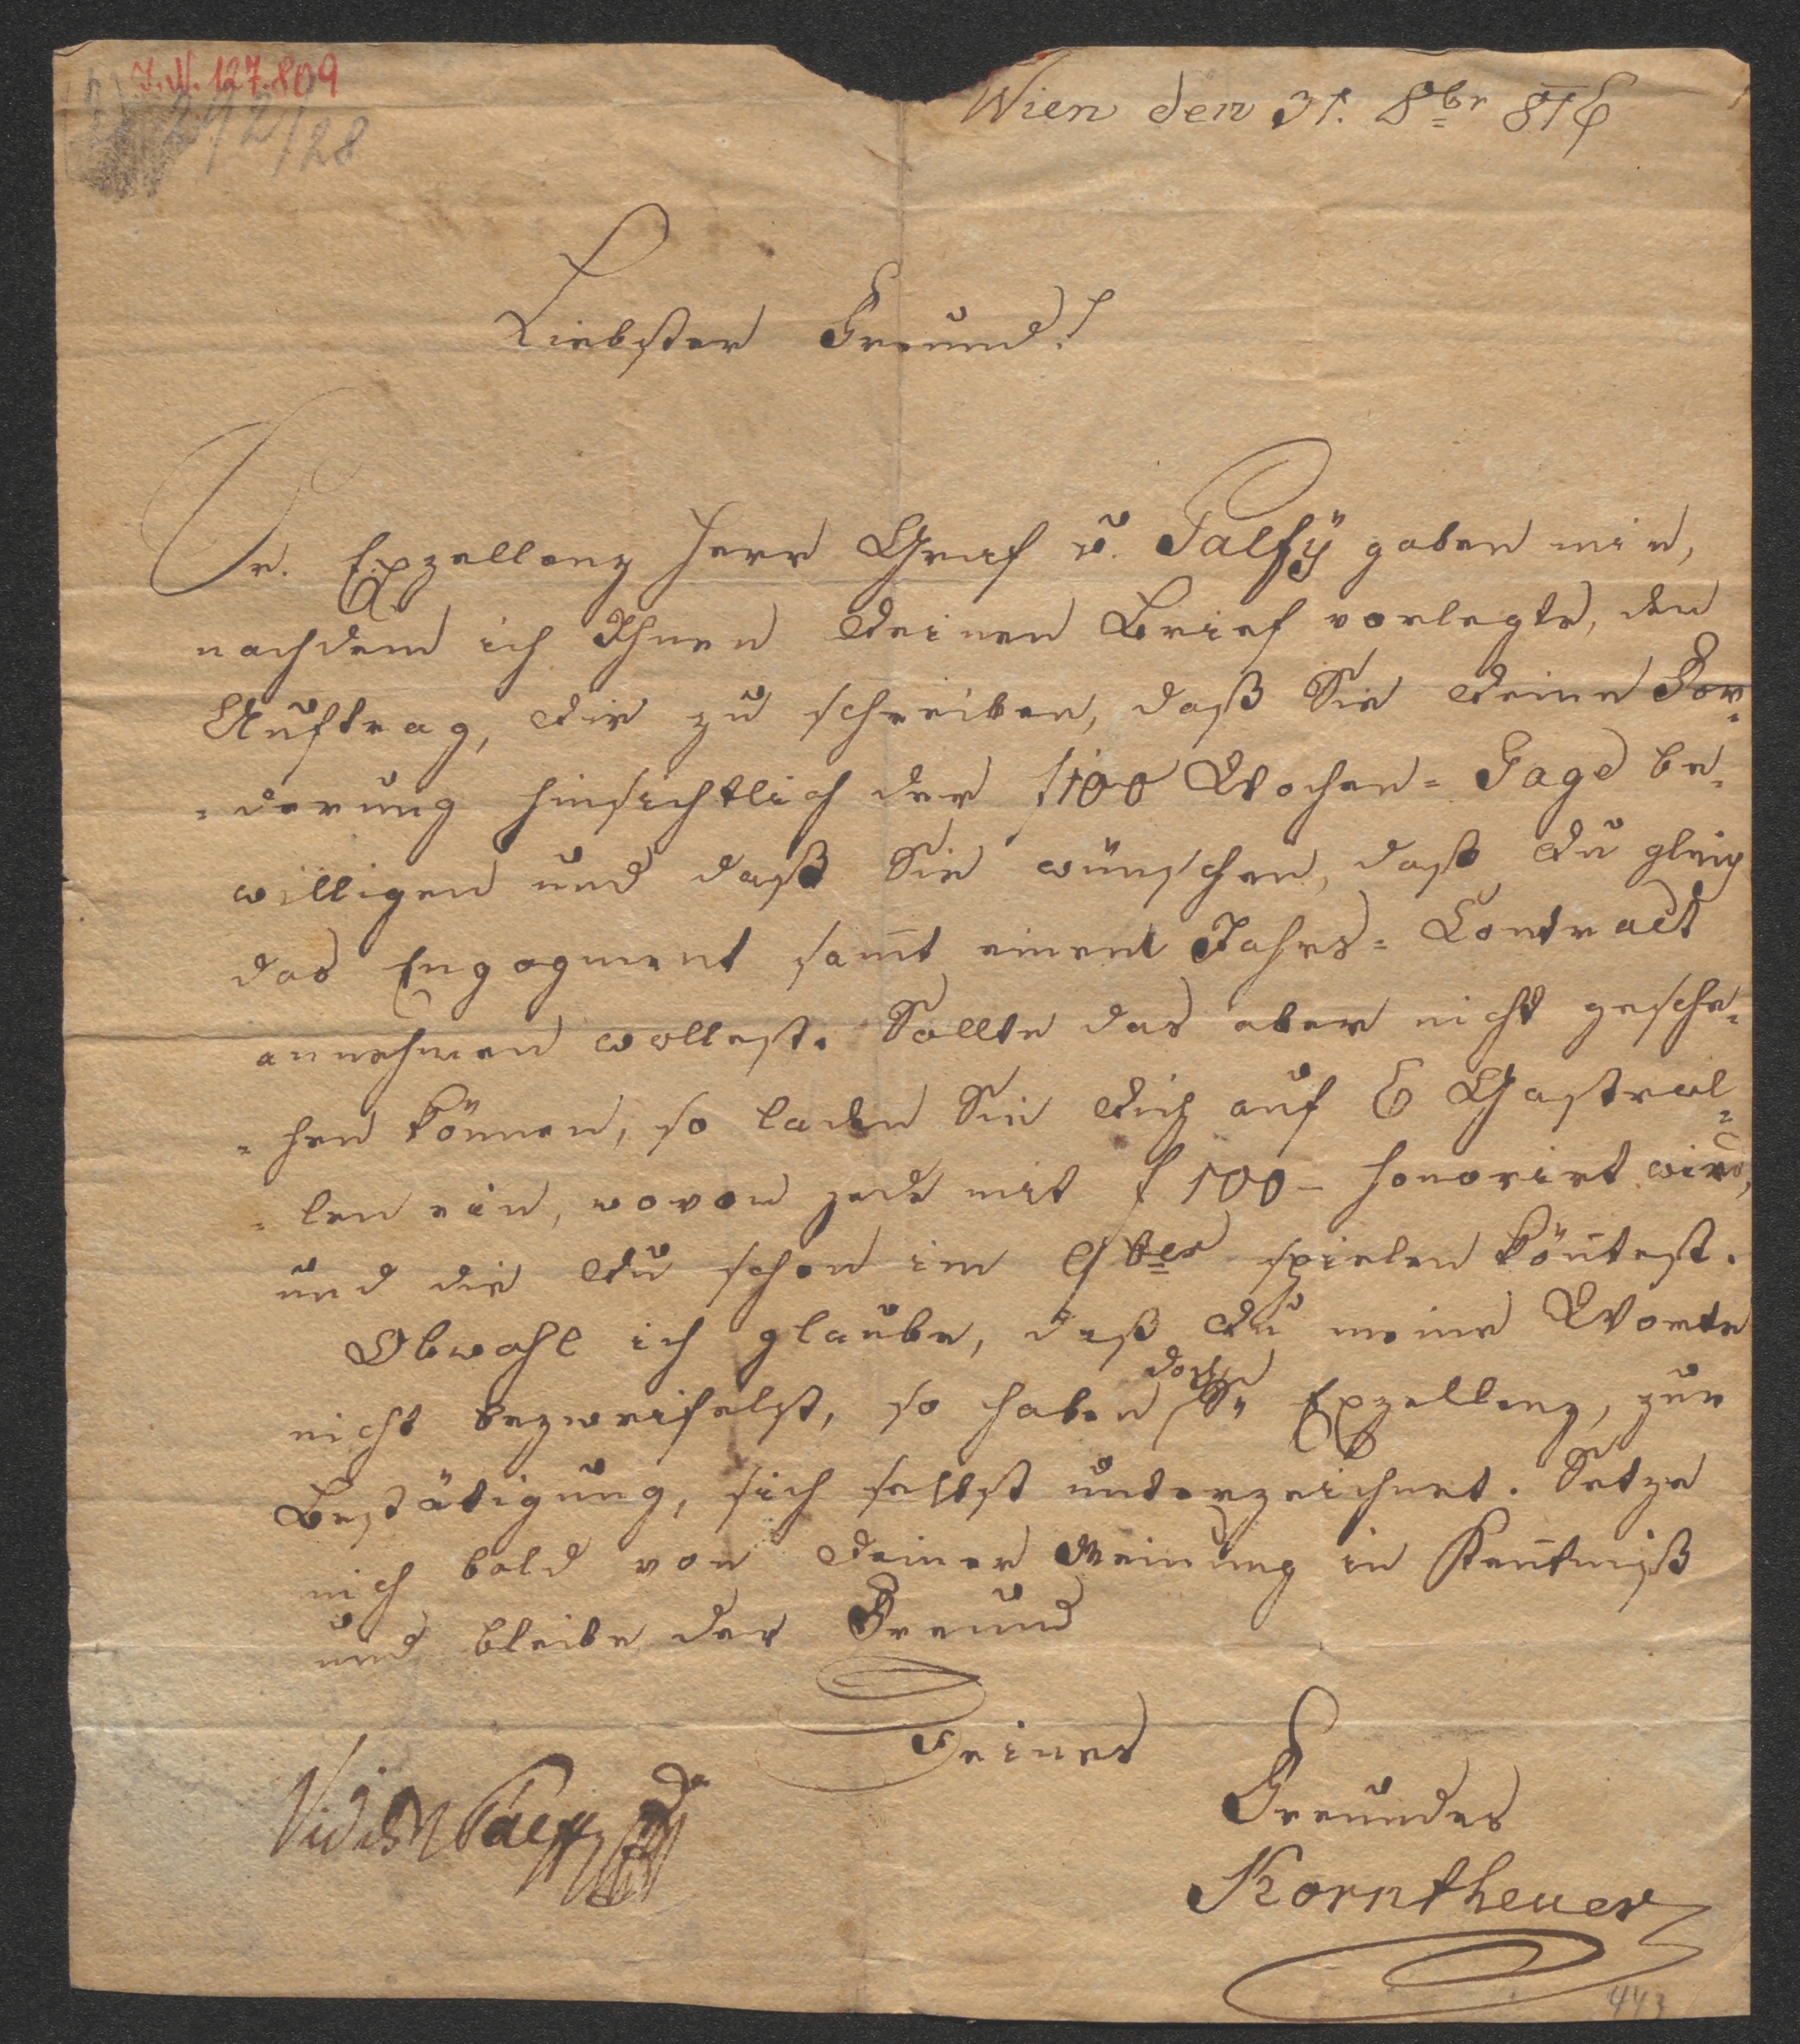 I.N. 127.809
242/28
Wien den 31. 8br 816
Liebster Freund!
Sr. Exzellenz Herr Graf v. Palfÿ gaben mir,
nachdem ich Ihnen Deinen Brief vorlegte, den
Auftrag, Dir zu schreiben, daß Sie Deine For=
=derung hinsichtlich der f100 Wochen=Gage be=
willigen und daß Sie wünschen, daß Du gleich
das Engagement sam̅t einem Jahrs=Contract
annehmen wollest. Sollte das aber nicht gesche=
=hen können, so laden Sie Dich auf 6 Gastrol=
=len ein, wovon jede mit f 100- honorirt wird,
und die Du schon im 9ber spielen kön̅test.
Obwohl ich glaube, daß Du meine Worte
nicht bezweifelst, so haben doch Sr Exzellenz, zur
Bestätigung, sich selbst unterzeichnet. Setze
mich bald von Deiner Meinung in Ken̅tniß
und bleibe der Freund
Deines
Freundes
Korntheuer
Vidi Palffy
443